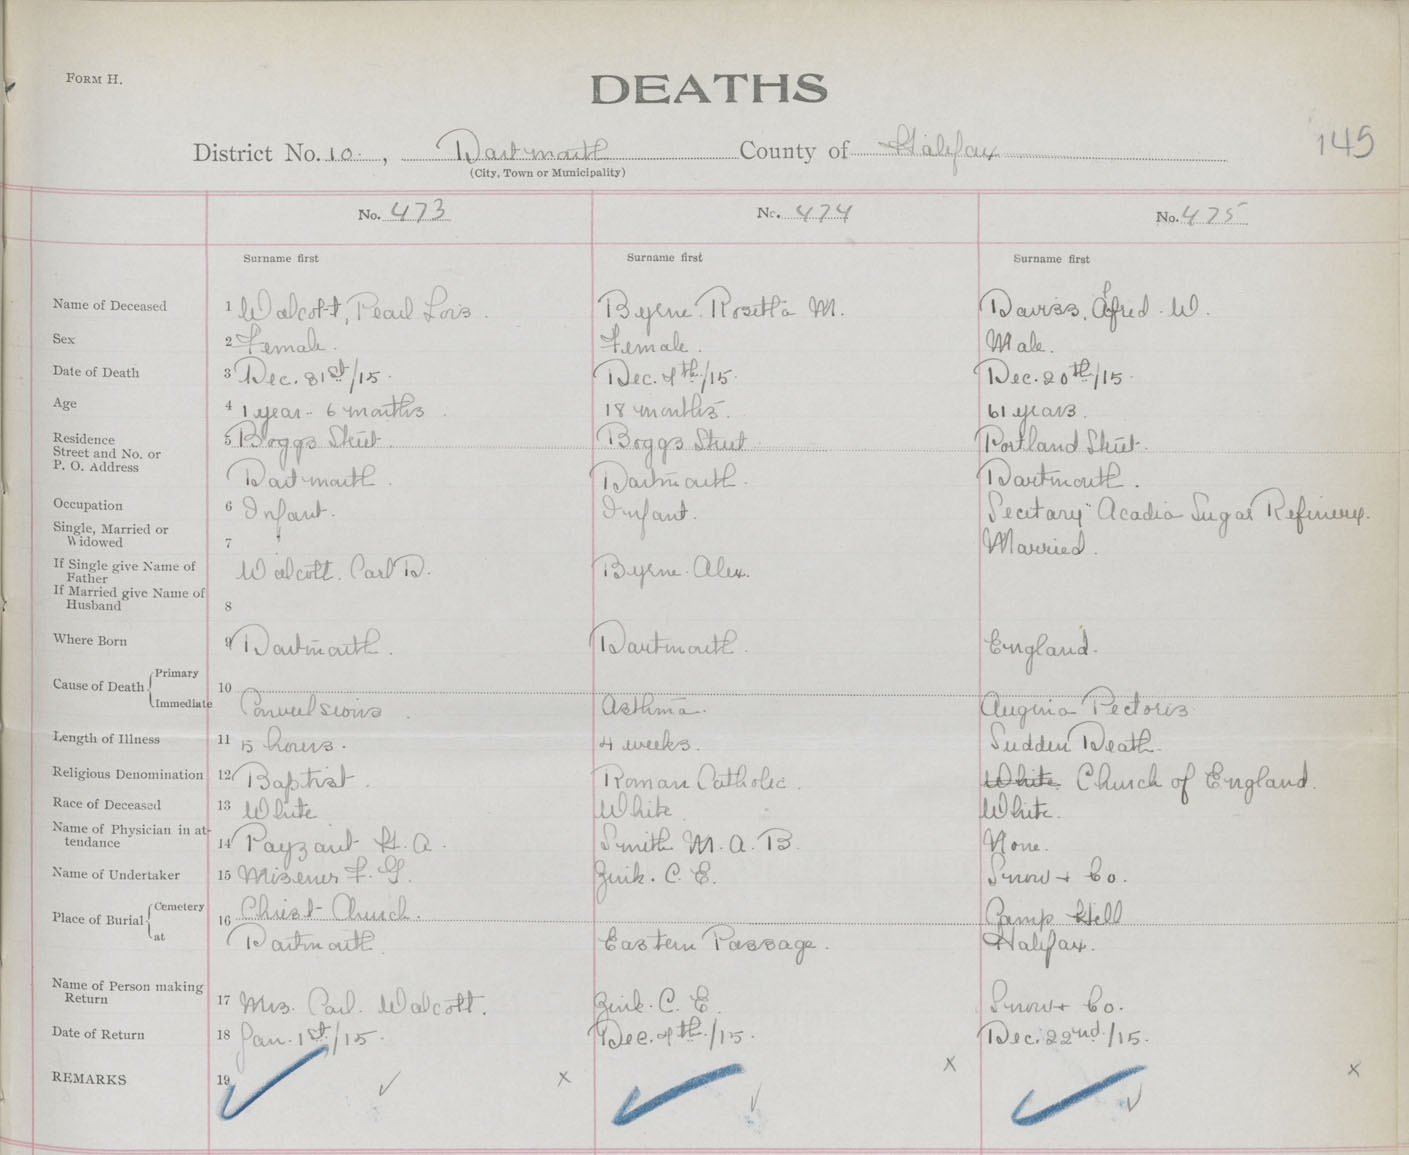 FORM H.
DEATHS
145
District No. 10, Dartmouth County of Halifax
(City, Town or Municipality)
No. 473 No. 474 No. 475
Surname first Surname first Surname first
Name of Deceased 1 Walcott, Pearl Lois. Byrne. Rosetta M. Daviss, Alfred. W.
Sex 2 Female. Female. Male.
Date of Death 3 Dec. 31st/15. Dec. 4th/15. Dec. 20th/15.
Age 4 1 year - 6 months. 18 months. 61 years.
Residence Street and No. or P. O. Address 5 Boggs Street. Boggs Street Portland Street.
Dartmouth. Dartmouth. Dartmouth.
Occupation 6 Infant. Infant. Secitary Acadia Sugar Refinery.
Single, Married or Widowed 7 Married.
If Single give Name of Father Walcott. Carl D. Byrne. Alex.
If Married give Name of Husband 8
Where Born 9 Dartmouth. Dartmouth. England.
Cause of Death Primary 10
Immediate Convulsions. Asthma. Angina Pectoris
Length of Illness 11 15 hours. 4 weeks. Sudden Death.
Religious Denomination 12 Baptist. Roman Catholic. White. Church of England.
Race of Deceased 13 White. White. White.
Name of Physician in attendance 14 Payzant H. A. Smith M. A. B. None.
Name of Undertaker 15 Misener F. G. Zink. C. E. Snow + Co.
Place of Burial Cemetery 16 Christ Church. Camp Hill
at Dartmouth Eastern Passage. Halifax.
Name of Person making Return 17 Mrs. Carl. Walcott. Zink. C. E. Snow + Co.
Date of Return 18 Jan. 1st/15. Dec. 4th./15. Dec. 22nd/15.
REMARKS 19 x x x